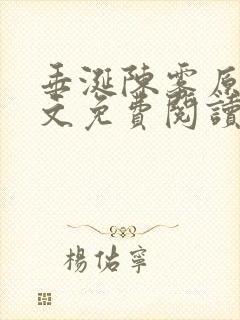 垂涎陳雾原
文免費閱讀
楊佑寧